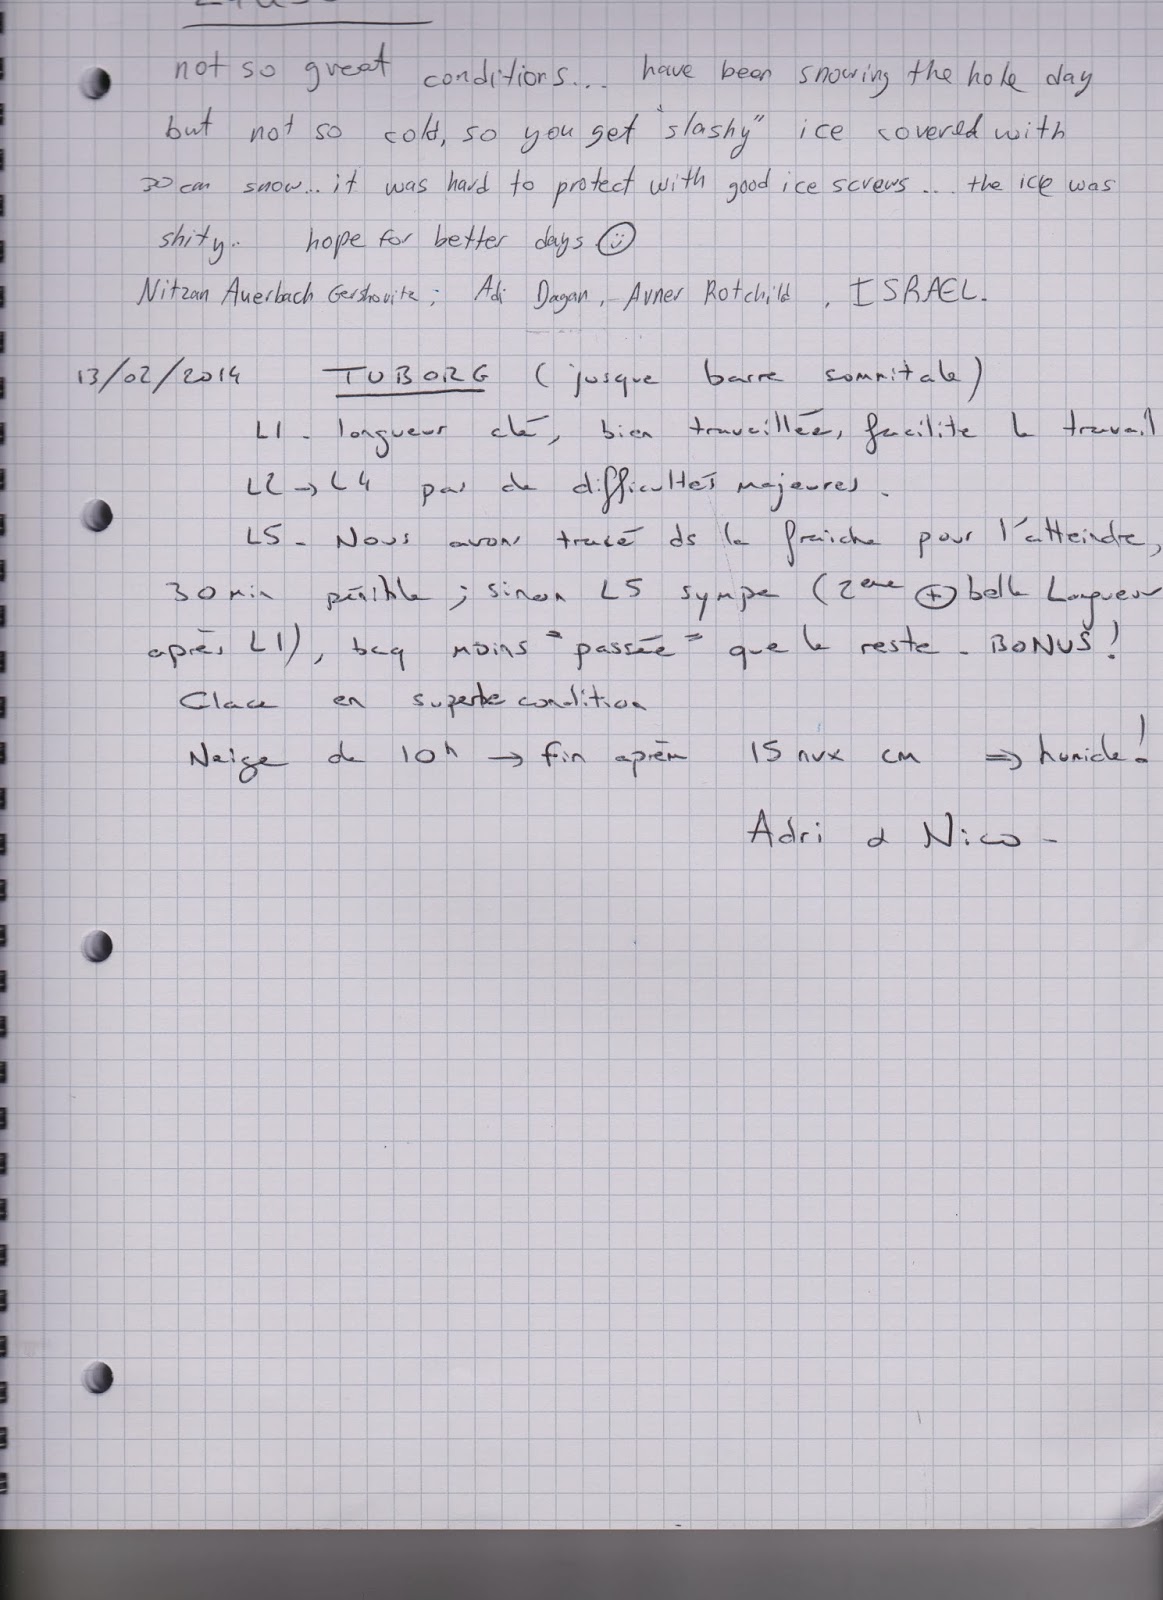 not so great conditions... have been snowing the hole day
but not so cold, so you get "slashy" ice covered with
30 cm snow... it was hard to protect with good ice screws... the ice was
shity.. hope for better days ☺
Nitzan Auerbach Gershovitz; Adi Dagan, Avner Rotchild, ISRAEL.
13/02/2014 TUBORG (jusque barre sommitale)
L1 - longueur clé, bien travaillée, facilite le travail
L2 → L4 pas de difficultés majeures.
L5 - Nous avons tracé ds la fraiche pour l'atteindre,
30 min pénible ; sinon L5 sympa (2ème ⊕ belle Longueur
après L1), bcq moins "passée" que le reste - BONUS!
Glace en superbe condition
Neige de 10h → fin aprèm 15 nvx cm ⇒ humide!
Adri & Nico -